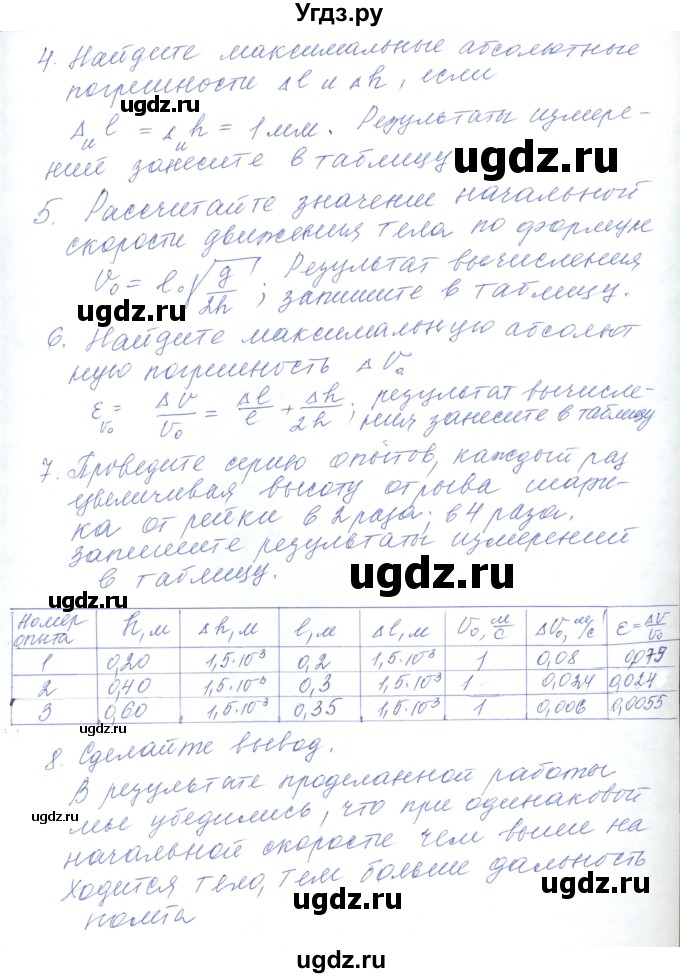 Угдз.ру
4. Найдите максимальные абсолютные
погрешности Δl и Δh, если
Δиl = Δиh = 1 мм. Результаты измере-
ний занесите в таблицу
5. Рассчитайте значение начальной
скорости движения тела по формуле
V₀ = l·√(g/2h); Результат вычисления
запишите в таблицу.
6. Найдите максимальную абсолют
ную погрешность ΔV₀
εv₀ = ΔV/V₀ = Δl/l + Δh/2h; результат вычисле-
ния занесите в таблицу
7. Проведите серию опытов, каждый раз
увеличивая высоту отрыва шари-
ка от рейки в 2 раза; в 4 раза.
Запишите результаты измерений
в таблицу.
Номер опыта h, м Δh, м l, м Δl, м V₀, м/с ΔV₀, м/с ε = ΔV/V₀
1 0,20 1,5·10⁻³ 0,2 1,5·10⁻³ 1 0,08 0,079
2 0,40 1,5·10⁻³ 0,3 1,5·10⁻³ 1 0,024 0,024
3 0,60 1,5·10⁻³ 0,35 1,5·10⁻³ 1 0,006 0,0055
8. Сделайте вывод.
В результате проделанной работы
мы убедились, что при одинаковой
начальной скорости чем выше на
ходится тело, тем больше дальность
полёта
ugdz.ru
ugdz.ru
ugdz.ru
ugdz.ru
ugdz.ru
ugdz.ru
ugdz.ru
ugdz.ru
ugdz.ru
ugdz.ru
ugdz.ru